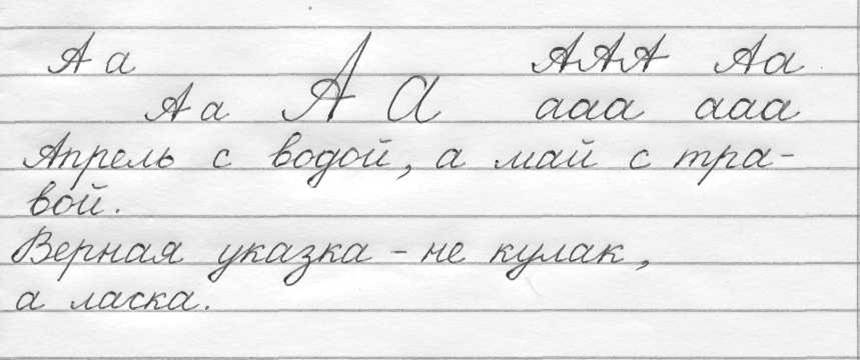 А а ААА Аа
А а А а ааа ааа
Апрель с водой, а май с тра-
вой.
Верная указка - не кулак,
а ласка.